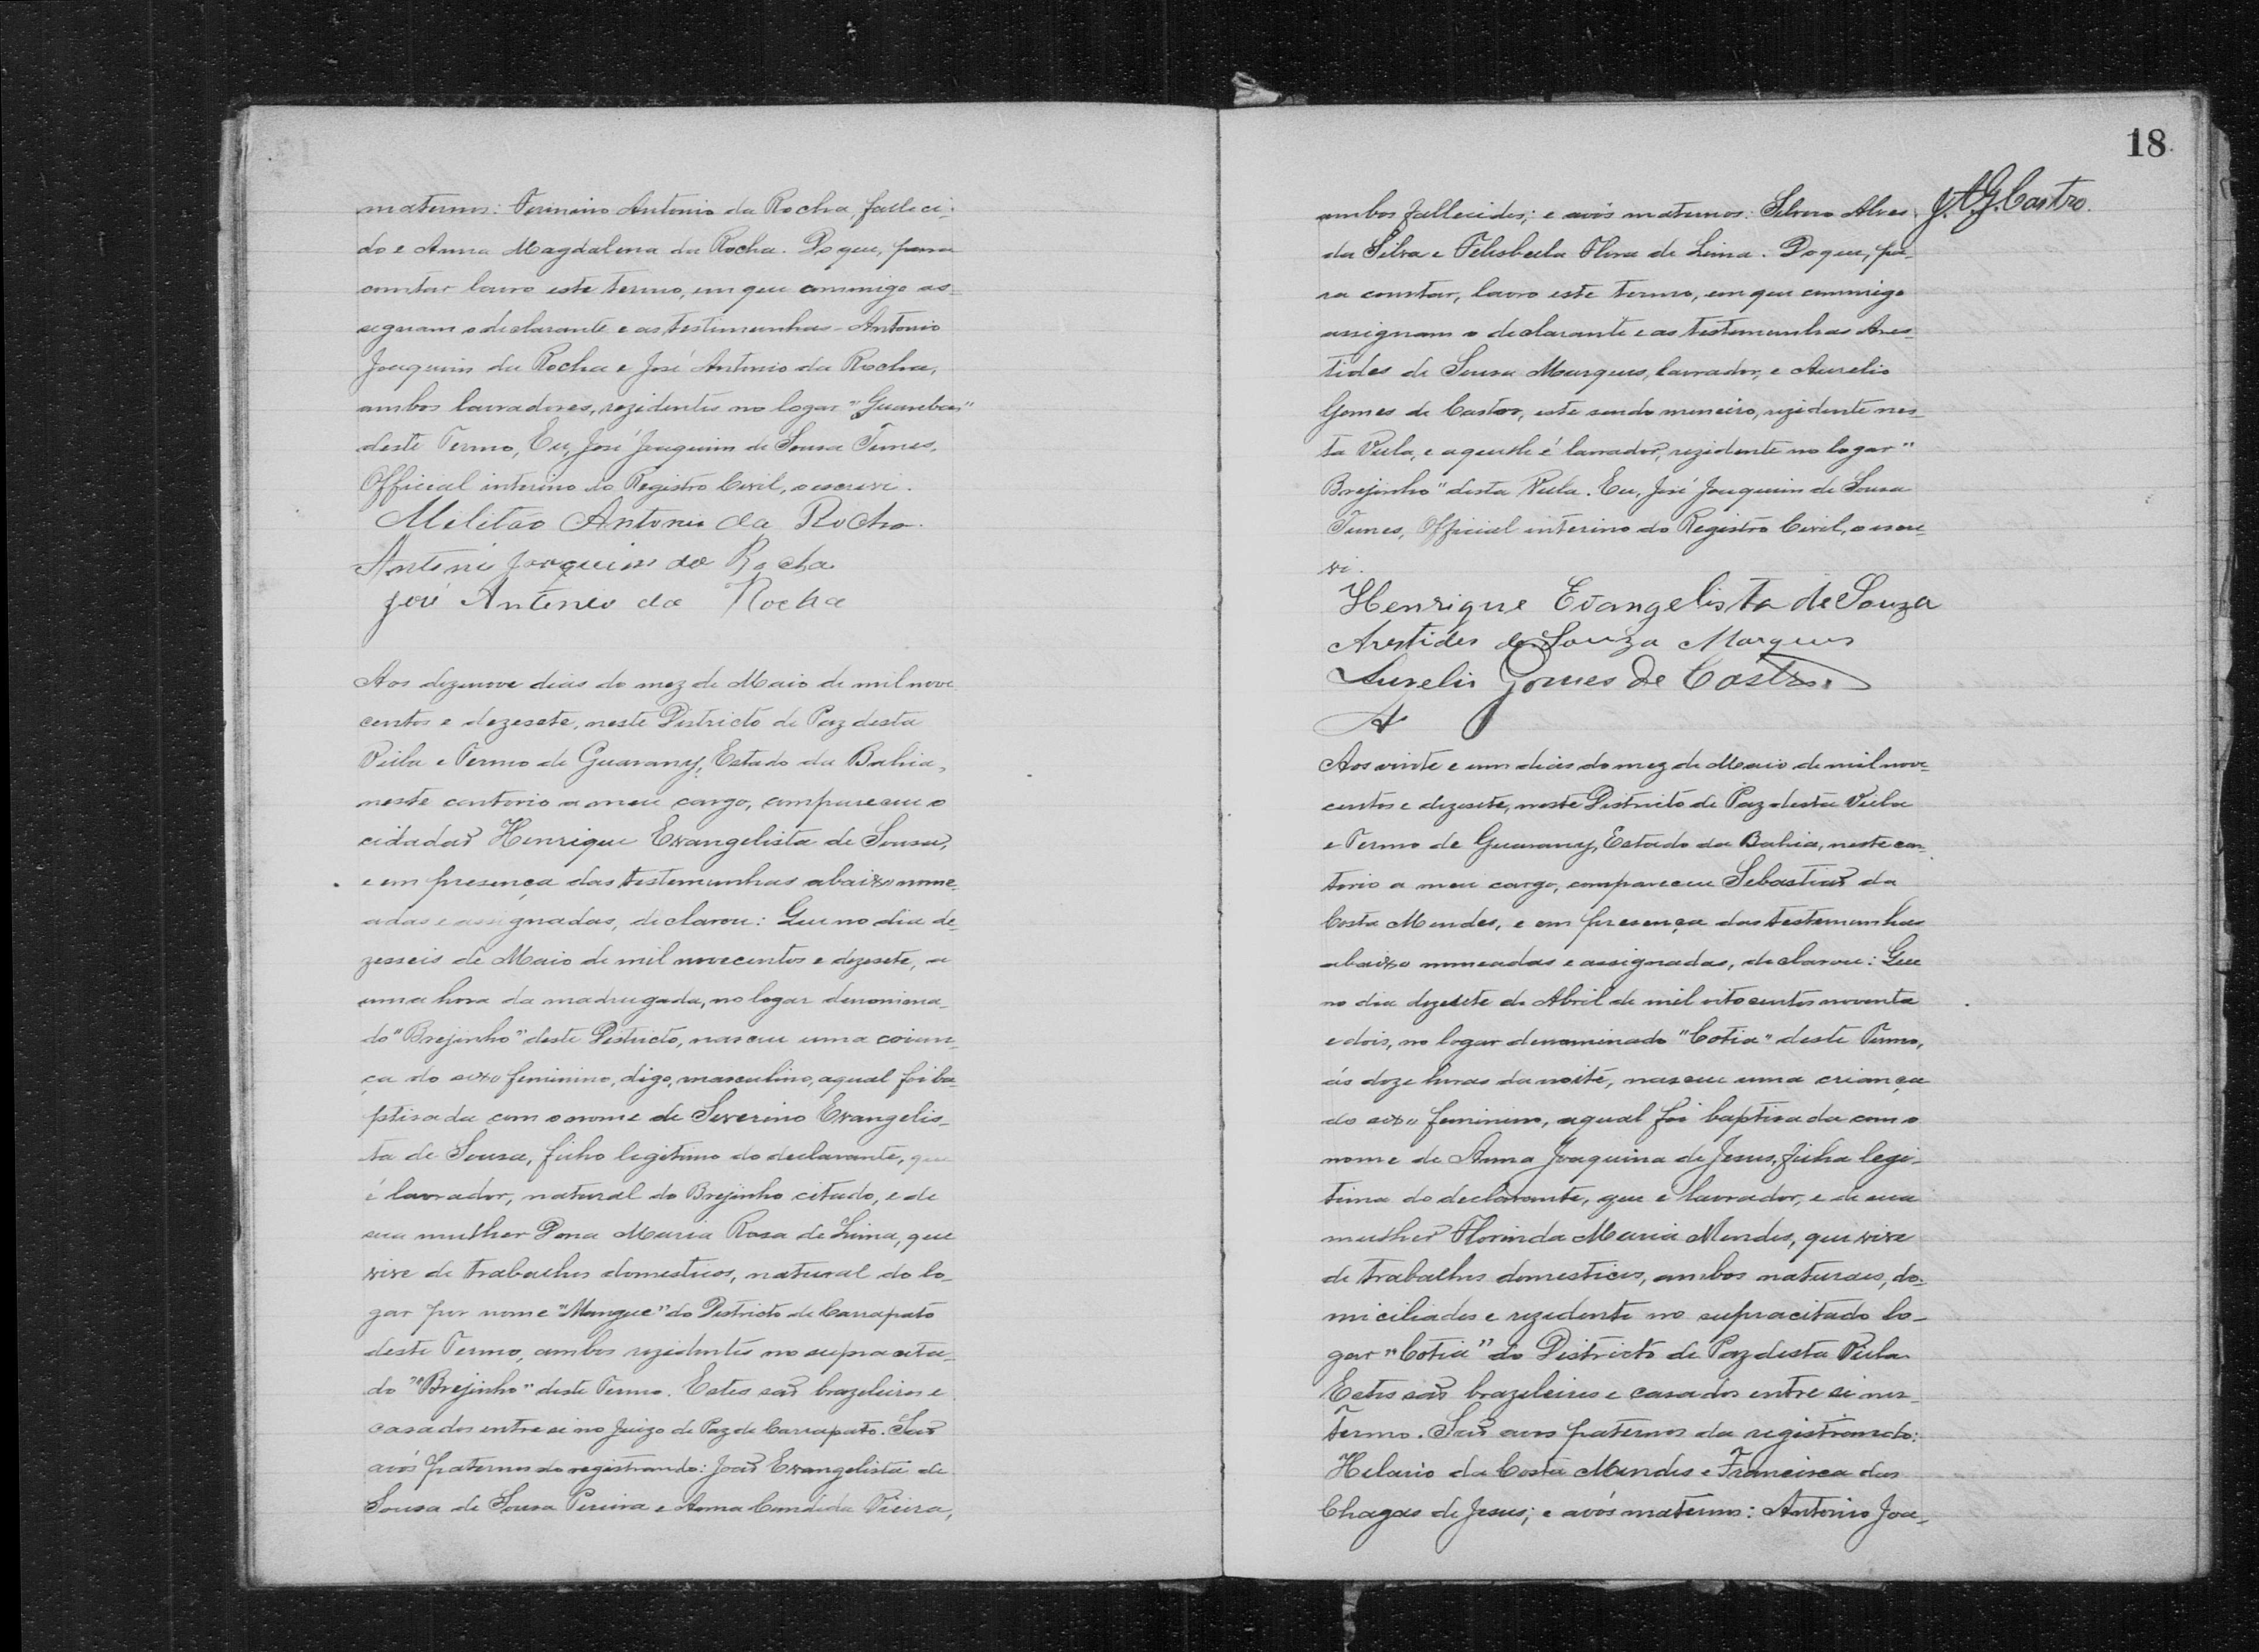 maternos: Firmino Antonio da Rocha, falleci-
do e Anna Magdalena da Rocha. Do que, para
constar lavro este termo, em que commigo as-
signam o declarante e as testimunhas - Antonio
Joaquim da Rocha e José Antonio da Rocha,
ambos lavradores, rezidentes no logar "Guaribas"
deste Termo, Eu, José Joaquim de Sousa Tunes,
Official interino do Registro Civil, o escrevi.
Militão Antonio da Rocha.
Antonio Joaquim da Rocha
José Antonio da Rocha
Aos dezenove dias do mez de Maio de mil nove
centos e dezesete, neste Districto de Paz desta
Villa e Termo de Guarany, Estado da Bahia,
neste cartorio a meu cargo, compareceu o
cidadaõ Henrique Evangelista de Sousa,
e em presença das testemunhas abaixo nome-
adas e assignadas, declarou: Que no dia de-
zesseis de Maio de mil novecentos e dezesete, a
uma hora da madrugada, no logar denomina-
do "Brejinho" deste Districto, nasceu uma crian-
ça do sexo feminino, digo, masculino, aqual foi ba-
ptisada com o nome de Severino Evangelis-
ta de Sousa, filho legitimo do declarante, que
é lavrador, natural do Brejinho citado, e de
sua mulher Dona Maria Rosa de Lima, que
vive de trabalhos domesticos, natural do lo-
gar por nome "Mangue" do Districto de Carrapato
deste Termo, ambos rezidentes no supracita-
do "Brejinho" deste Termo. Estes saõ brazileiros e
casados entre si no Juizo de Paz de Carrapato. Saõ
avós paternos do registrando: Joaõ Evangelista de
Sousa de Sousa Pereira e Anna Candida Vieira,
18
J. A. G. Castro.
ambos fallecidos; e avós maternos: Silverio Alves
da Silva e Felisbella Flora de Lima. Do que, pa-
ra constar, lavro este termo, em que commigo
assignam o declarante e as testemunhas Ares-
tides de Sousa Marques, lavrador, e Aurelio
Gomes de Castro, este sendo mineiro, rezidente nes-
ta Villa, e aquelle é lavrador, rezidente no logar "
Brejinho" desta Villa. Eu, José Joaquim de Sousa
Tunes, Official interino do Registro Civil, o escre-
vi.
Henrique Evangelista de Souza
Arestides de Souza Marques
Aurelio Gomes de Castro
A
Aos vinte e um dias do mez de Maio de mil nove-
centos e dezesete, neste Districto de Paz desta Villa
e Termo de Guarany, Estado da Bahia, neste car-
torio a meu cargo, compareceu Sebastiaõ da
Costa Mendes, e em presença das testemunhas
abaixo nomeadas e assignadas, declarou: Que
no dia dezesete de Abril de mil oitocentos noventa
e dois, no logar denominado "Cotia" deste Termo,
ás doze horas da noite, nasceu uma criança
do sexo feminino, aqual foi baptisada com o
nome de Anna Joaquina de Jesus, filha legi-
tima do declarante, que e lavrador, e de sua
mulher Florinda Maria Mendes, que vive
de trabalhos domesticos, ambos naturaes, do-
miciliados e rezidente no supracitado lo-
gar "Cotia" do Districto de Paz desta Villa
Estes saõ brazileiros e casados entre si nes-
termo. Saõ avos paternos da registrando:
Hilario da Costa Mendes e Francisca das
Chagas de Jesus; e avós maternos: Antonio Joa-